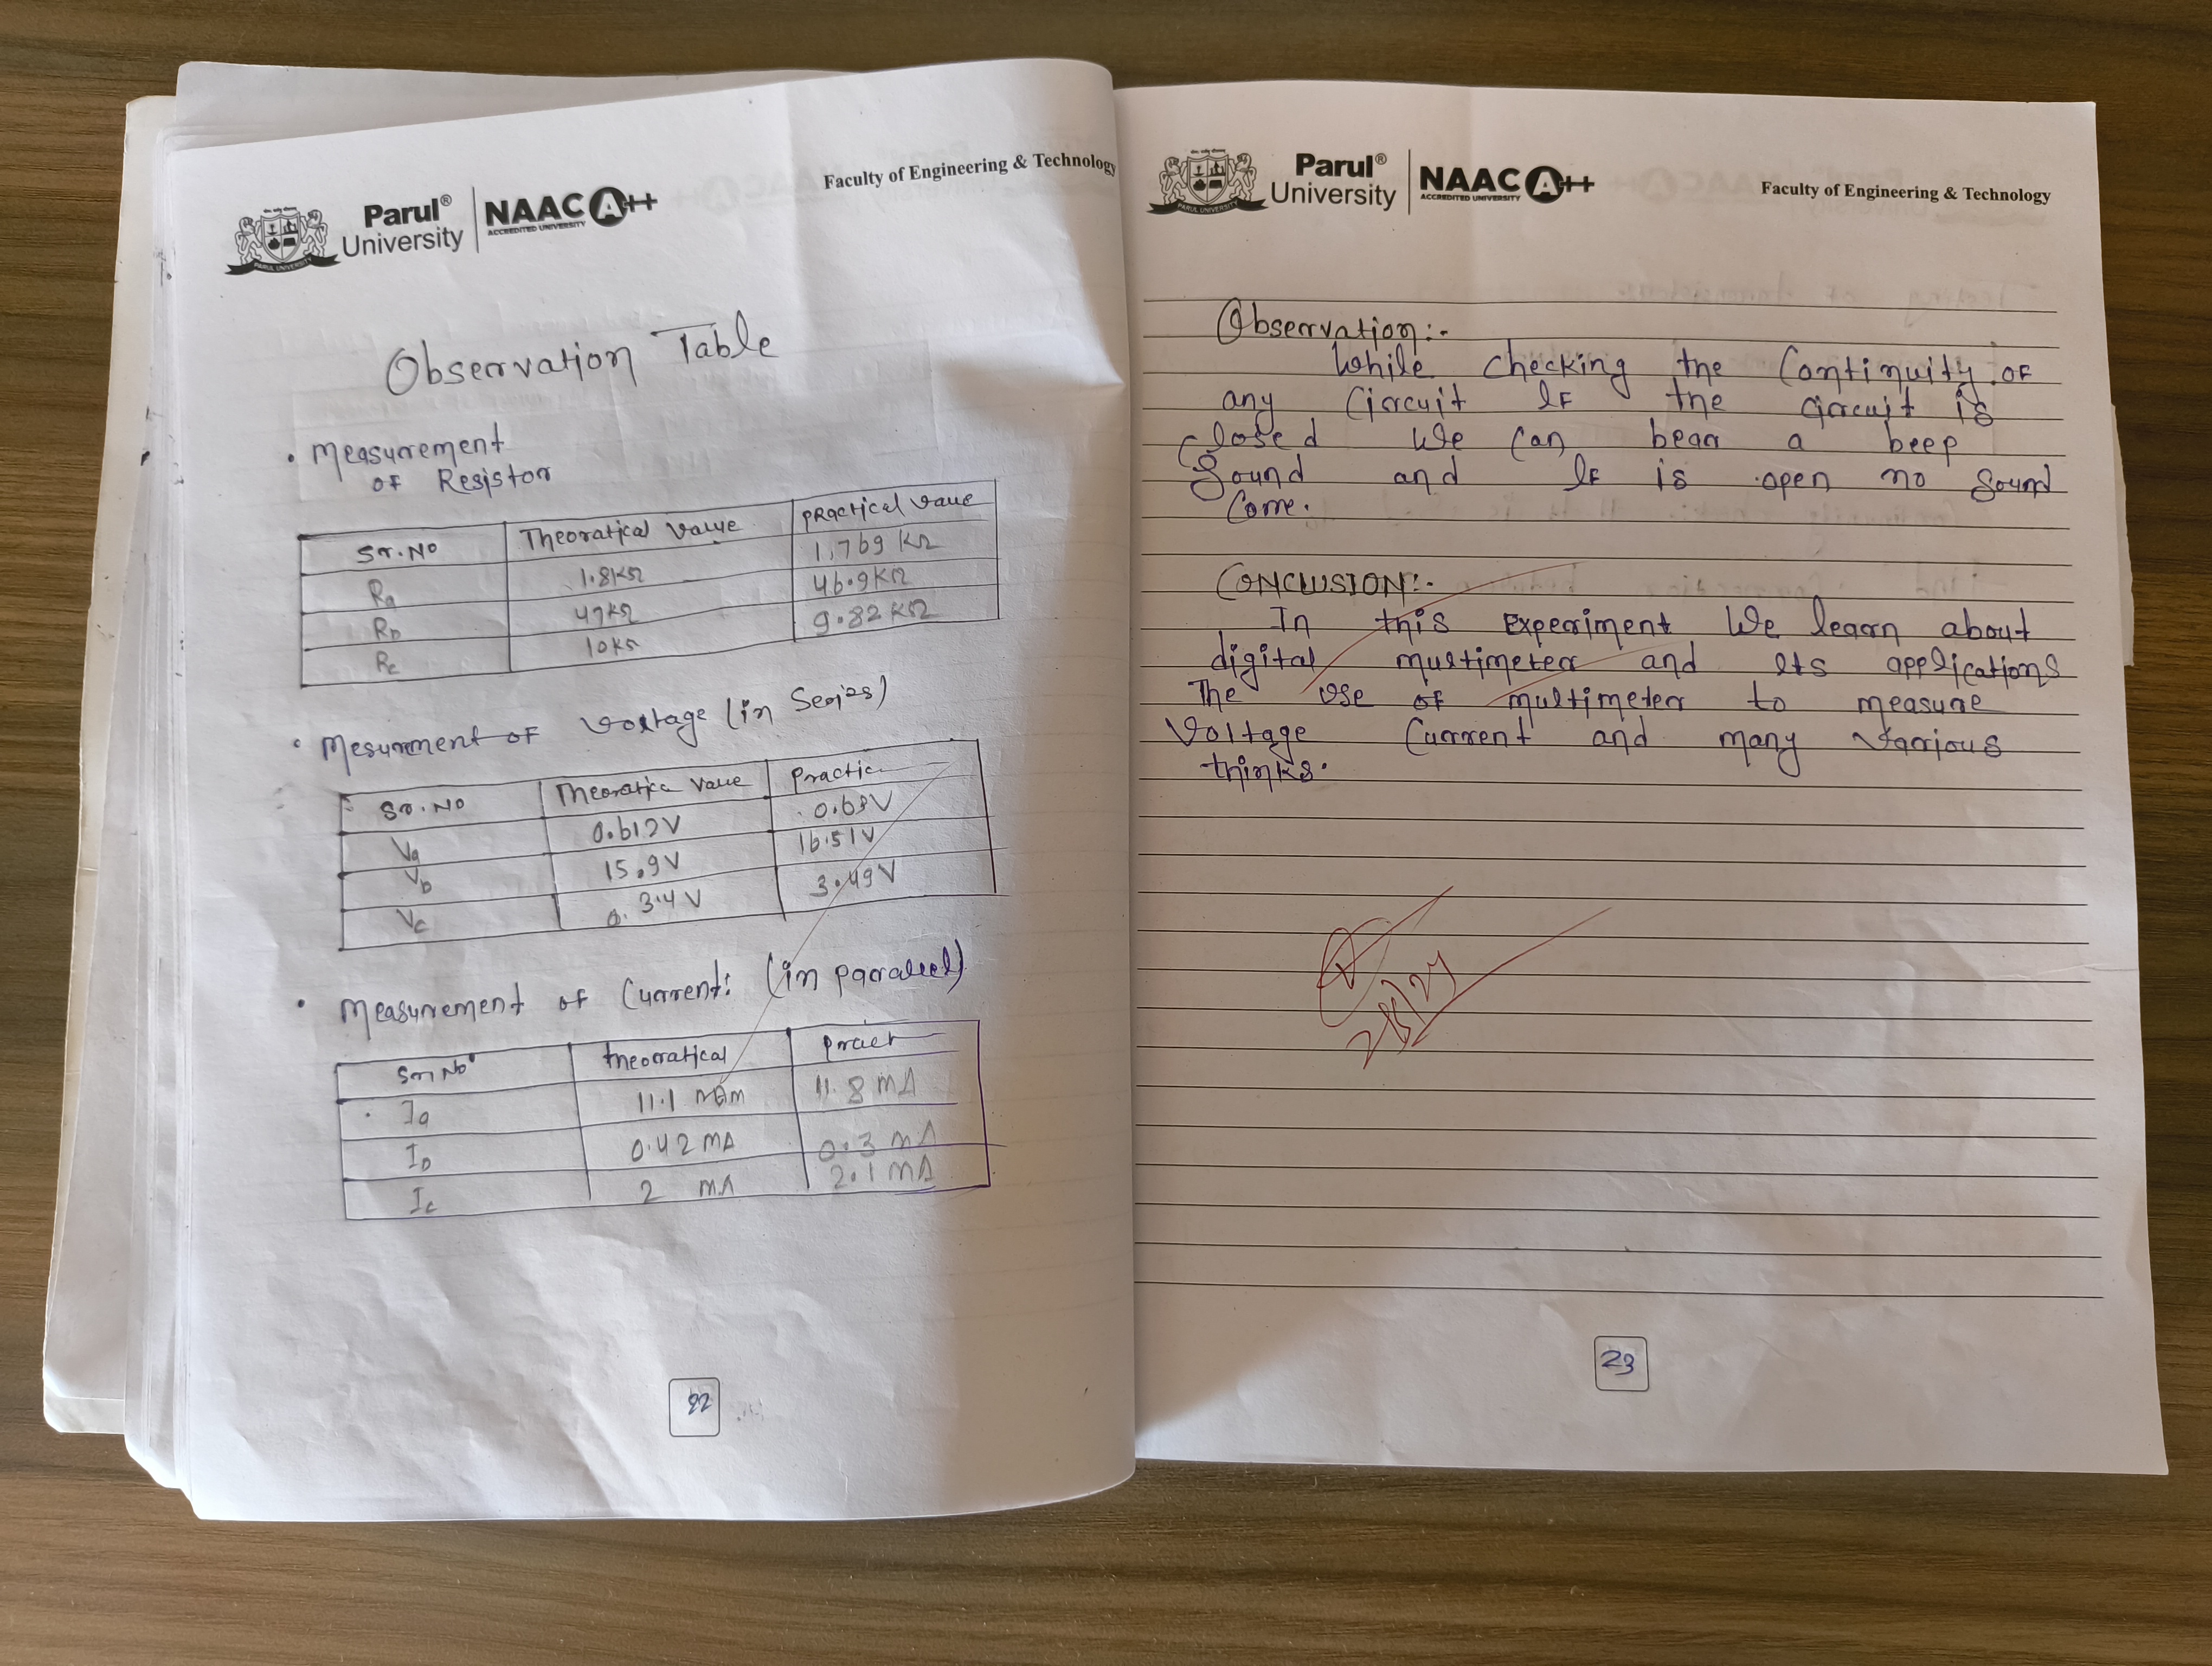 Parul® University
NAAC A++
ACCREDITED UNIVERSITY
PARUL UNIVERSITY
Faculty of Engineering & Technology
Observation Table
• Measurement
of Resistor
Sr.No Theoratical Value Practical vaue
Ra 1.8KΩ 1.769 KΩ
Rb 47KΩ 46.9KΩ
Rc 10KΩ 9.82KΩ
• Mesurment of Voltage (in Series)
Sr.No Theoratica Vaue Practic
Va 0.612V 0.63V
Vb 15.9V 16.51V
Vc 3.4V 3.49V
• Measurement of Current: (in paralell)
Sr No theoratical Pract
Ia 11.1 11.8 mA
Ib 0.42 mA 0.3 mA
Ic 2 mA 2.1 mA
22
Parul® University
NAAC A++
ACCREDITED UNIVERSITY
PARUL UNIVERSITY
Faculty of Engineering & Technology
Observation:-
While checking the Continuity of
any Circuit If the circuit is
Closed We Can hear a beep
Sound and If is open no sound
Come.
CONCLUSION:-
In this Experiment We learn about
digital multimeter and Its applications
The Use of multimeter to measure
Voltage Current and many various
thinks.
23